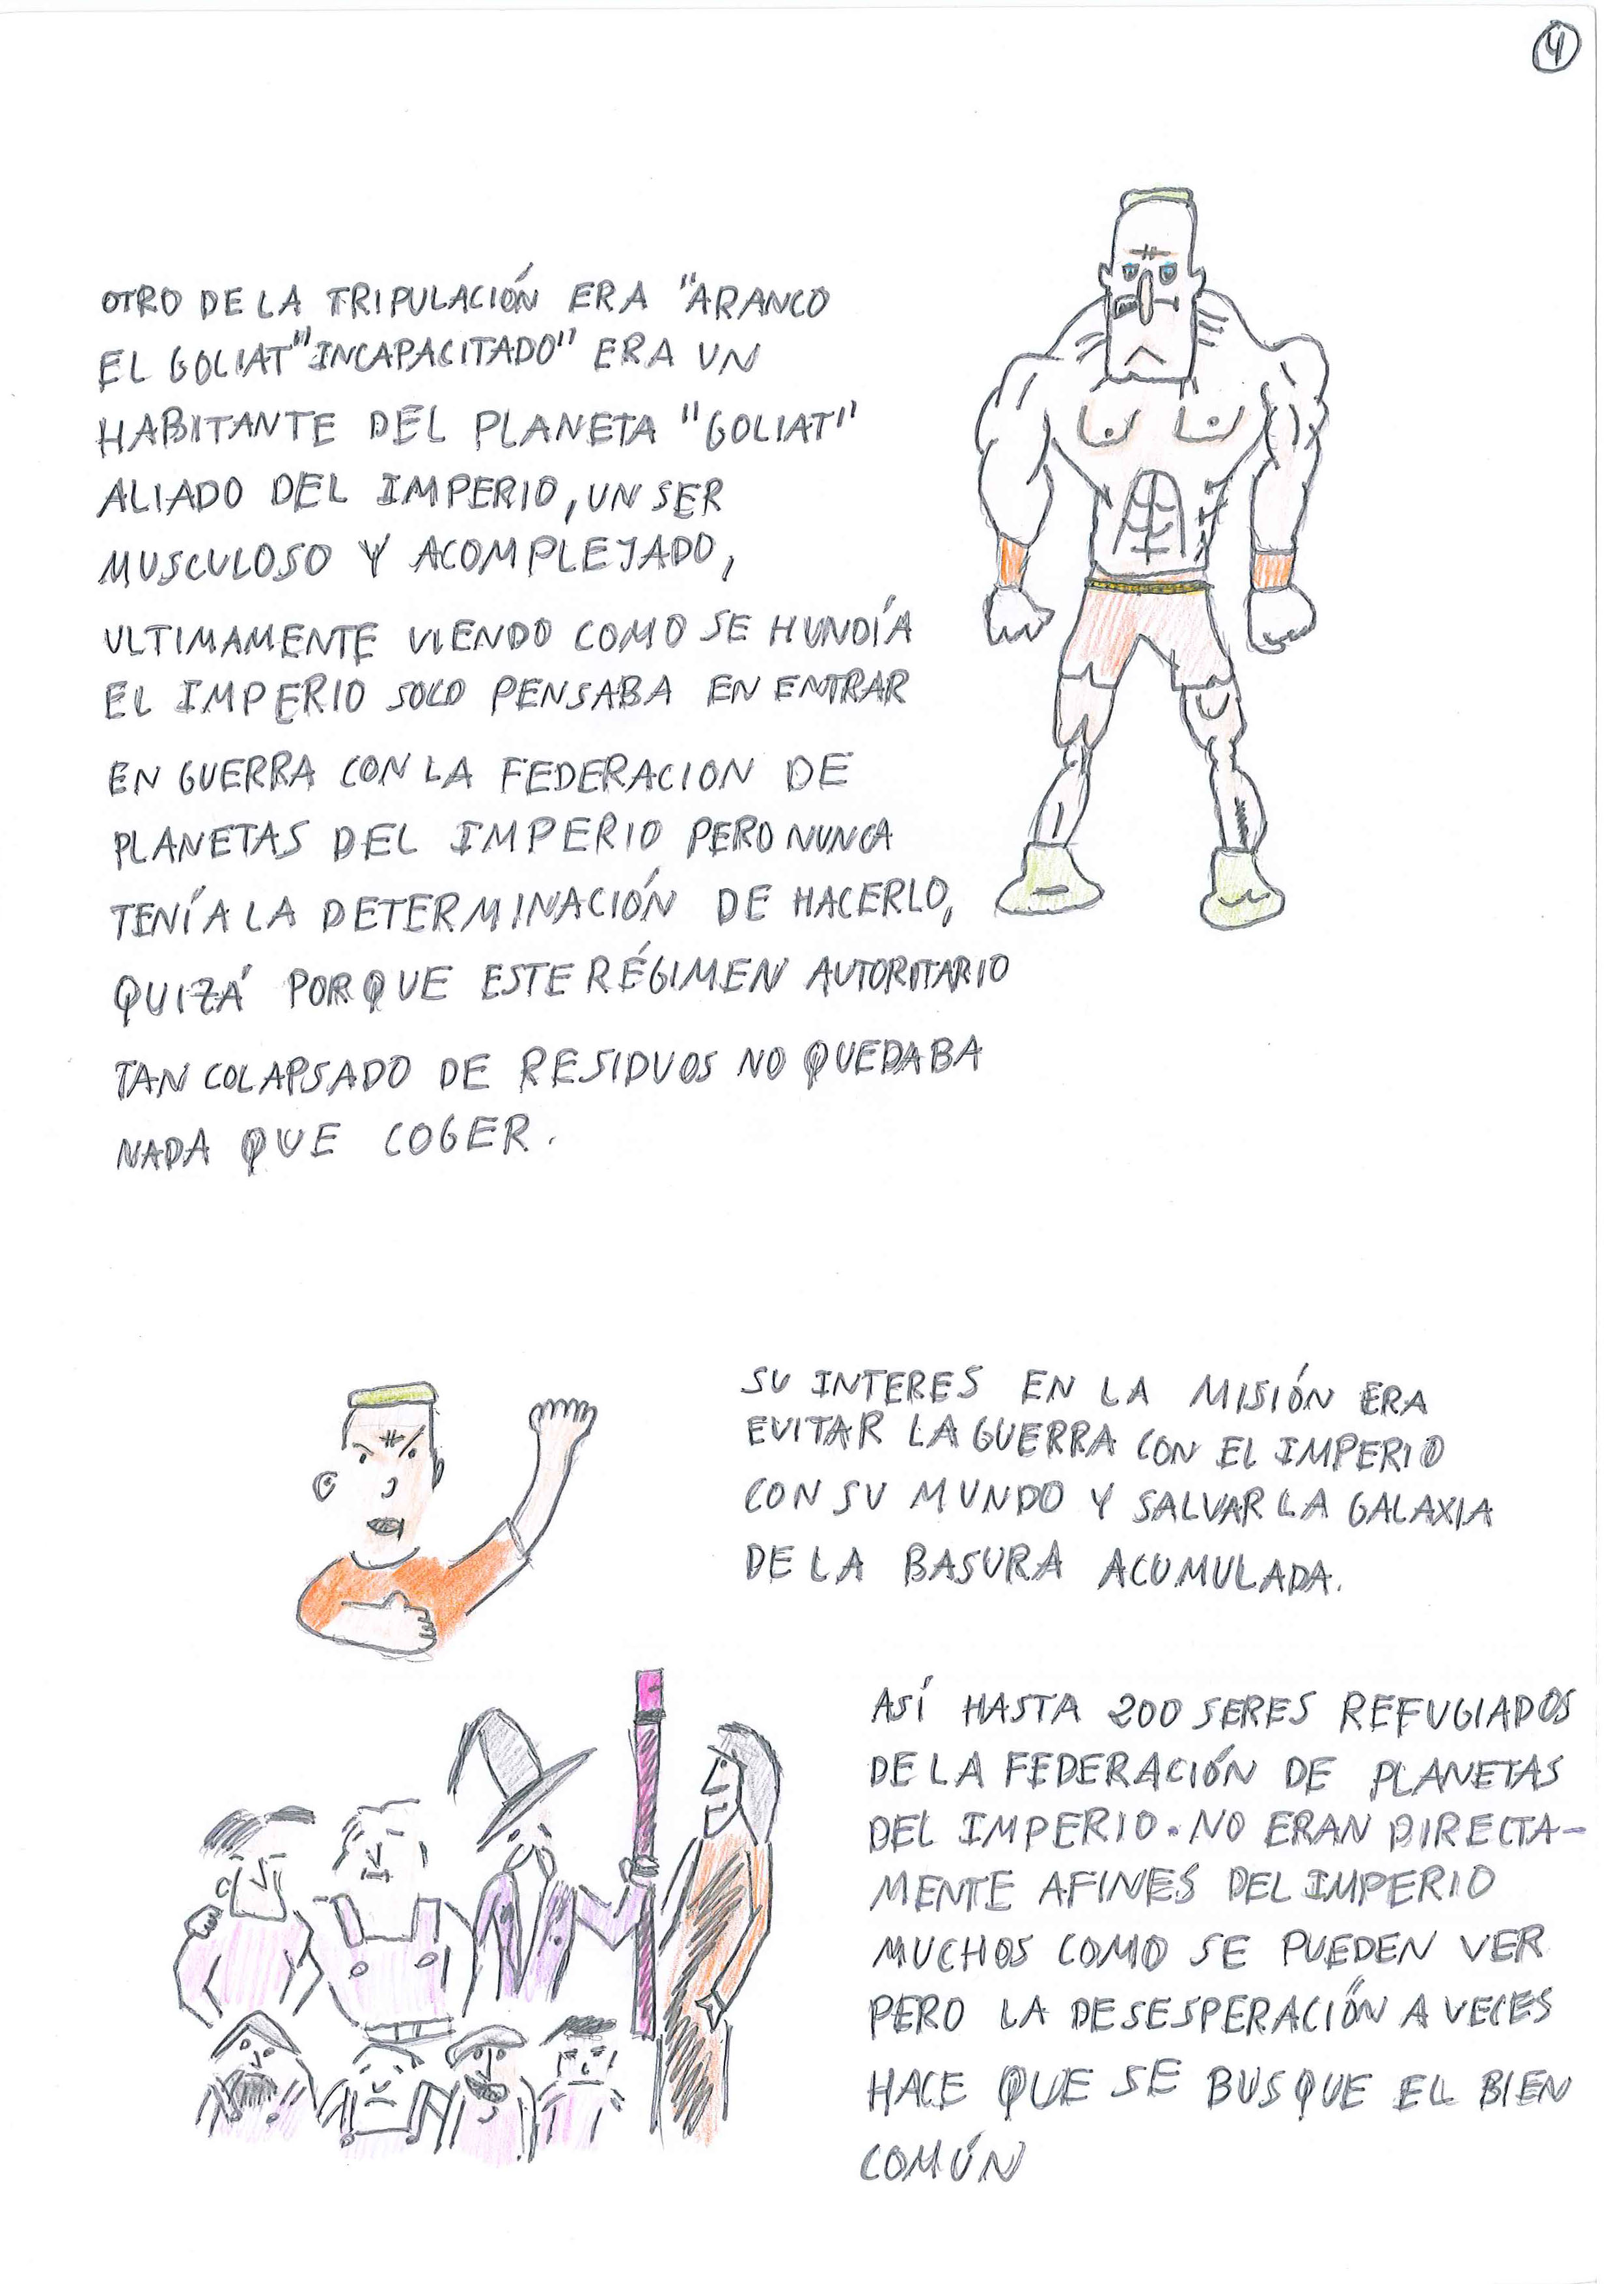 4
OTRO DE LA TRIPULACIÓN ERA "ARANCO
EL GOLIAT" INCAPACITADO" ERA UN
HABITANTE DEL PLANETA "GOLIAT"
ALIADO DEL IMPERIO, UN SER
MUSCULOSO Y ACOMPLEJADO,
ULTIMAMENTE VIENDO COMO SE HUNDÍA
EL IMPERIO SOLO PENSABA EN ENTRAR
EN GUERRA CON LA FEDERACION DE
PLANETAS DEL IMPERIO PERO NUNCA
TENÍA LA DETERMINACIÓN DE HACERLO,
QUIZÁ PORQUE ESTE RÉGIMEN AUTORITARIO
TAN COLAPSADO DE RESIDUOS NO QUEDABA
NADA QUE COGER.
SU INTERES EN LA MISIÓN ERA
EVITAR LA GUERRA CON EL IMPERIO
CON SU MUNDO Y SALVAR LA GALAXIA
DE LA BASURA ACUMULADA.
ASÍ HASTA 200 SERES REFUGIADOS
DE LA FEDERACIÓN DE PLANETAS
DEL IMPERIO. NO ERAN DIRECTA-
MENTE AFINES DEL IMPERIO
MUCHOS COMO SE PUEDEN VER
PERO LA DESESPERACIÓN A VECES
HACE QUE SE BUSQUE EL BIEN
COMÚN